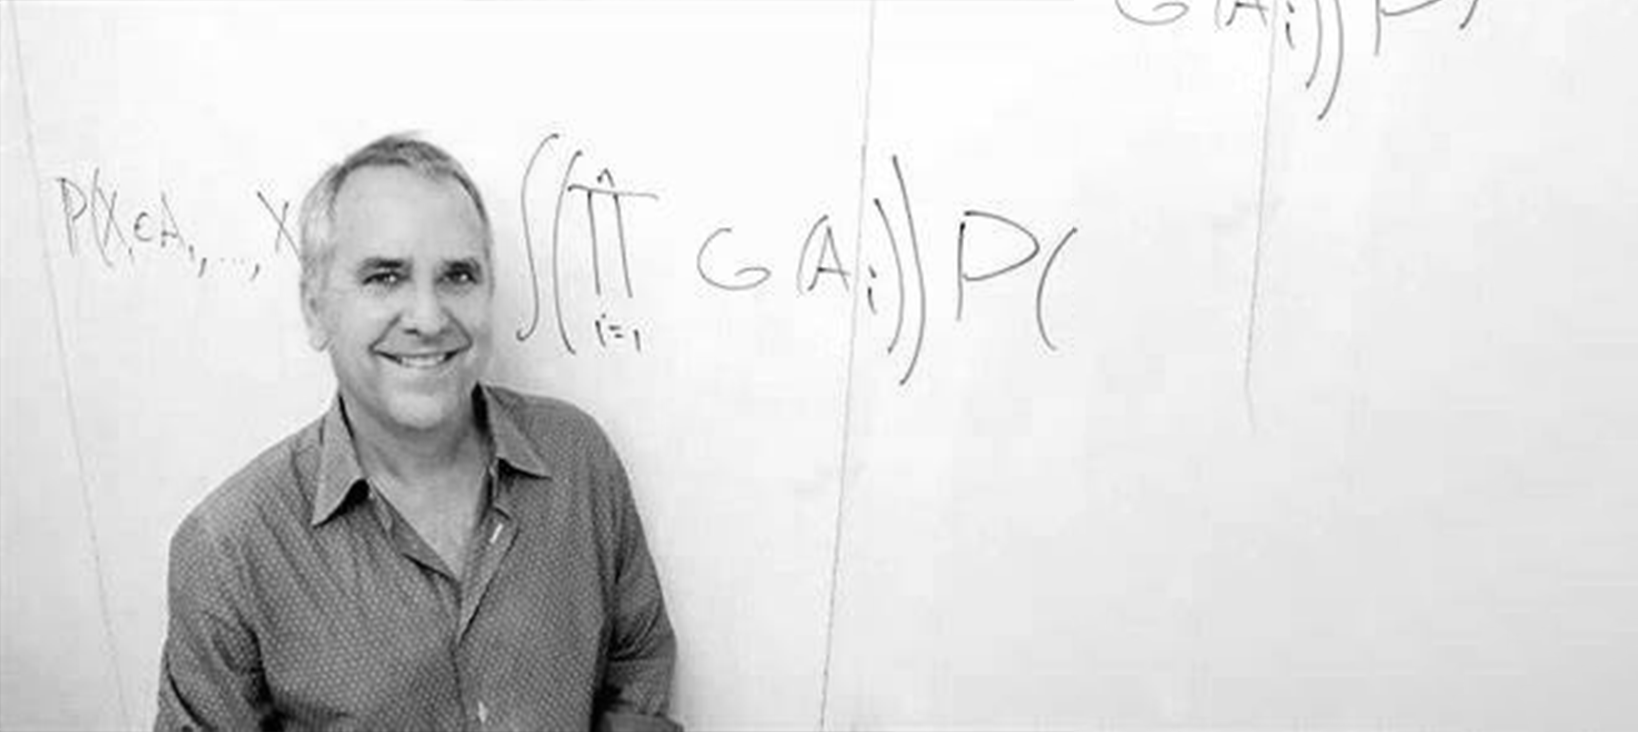 G(Ai))P(
P(X₁∈A₁,..., X ∫(∏ⁿᵢ₌₁ G(Aᵢ))P(